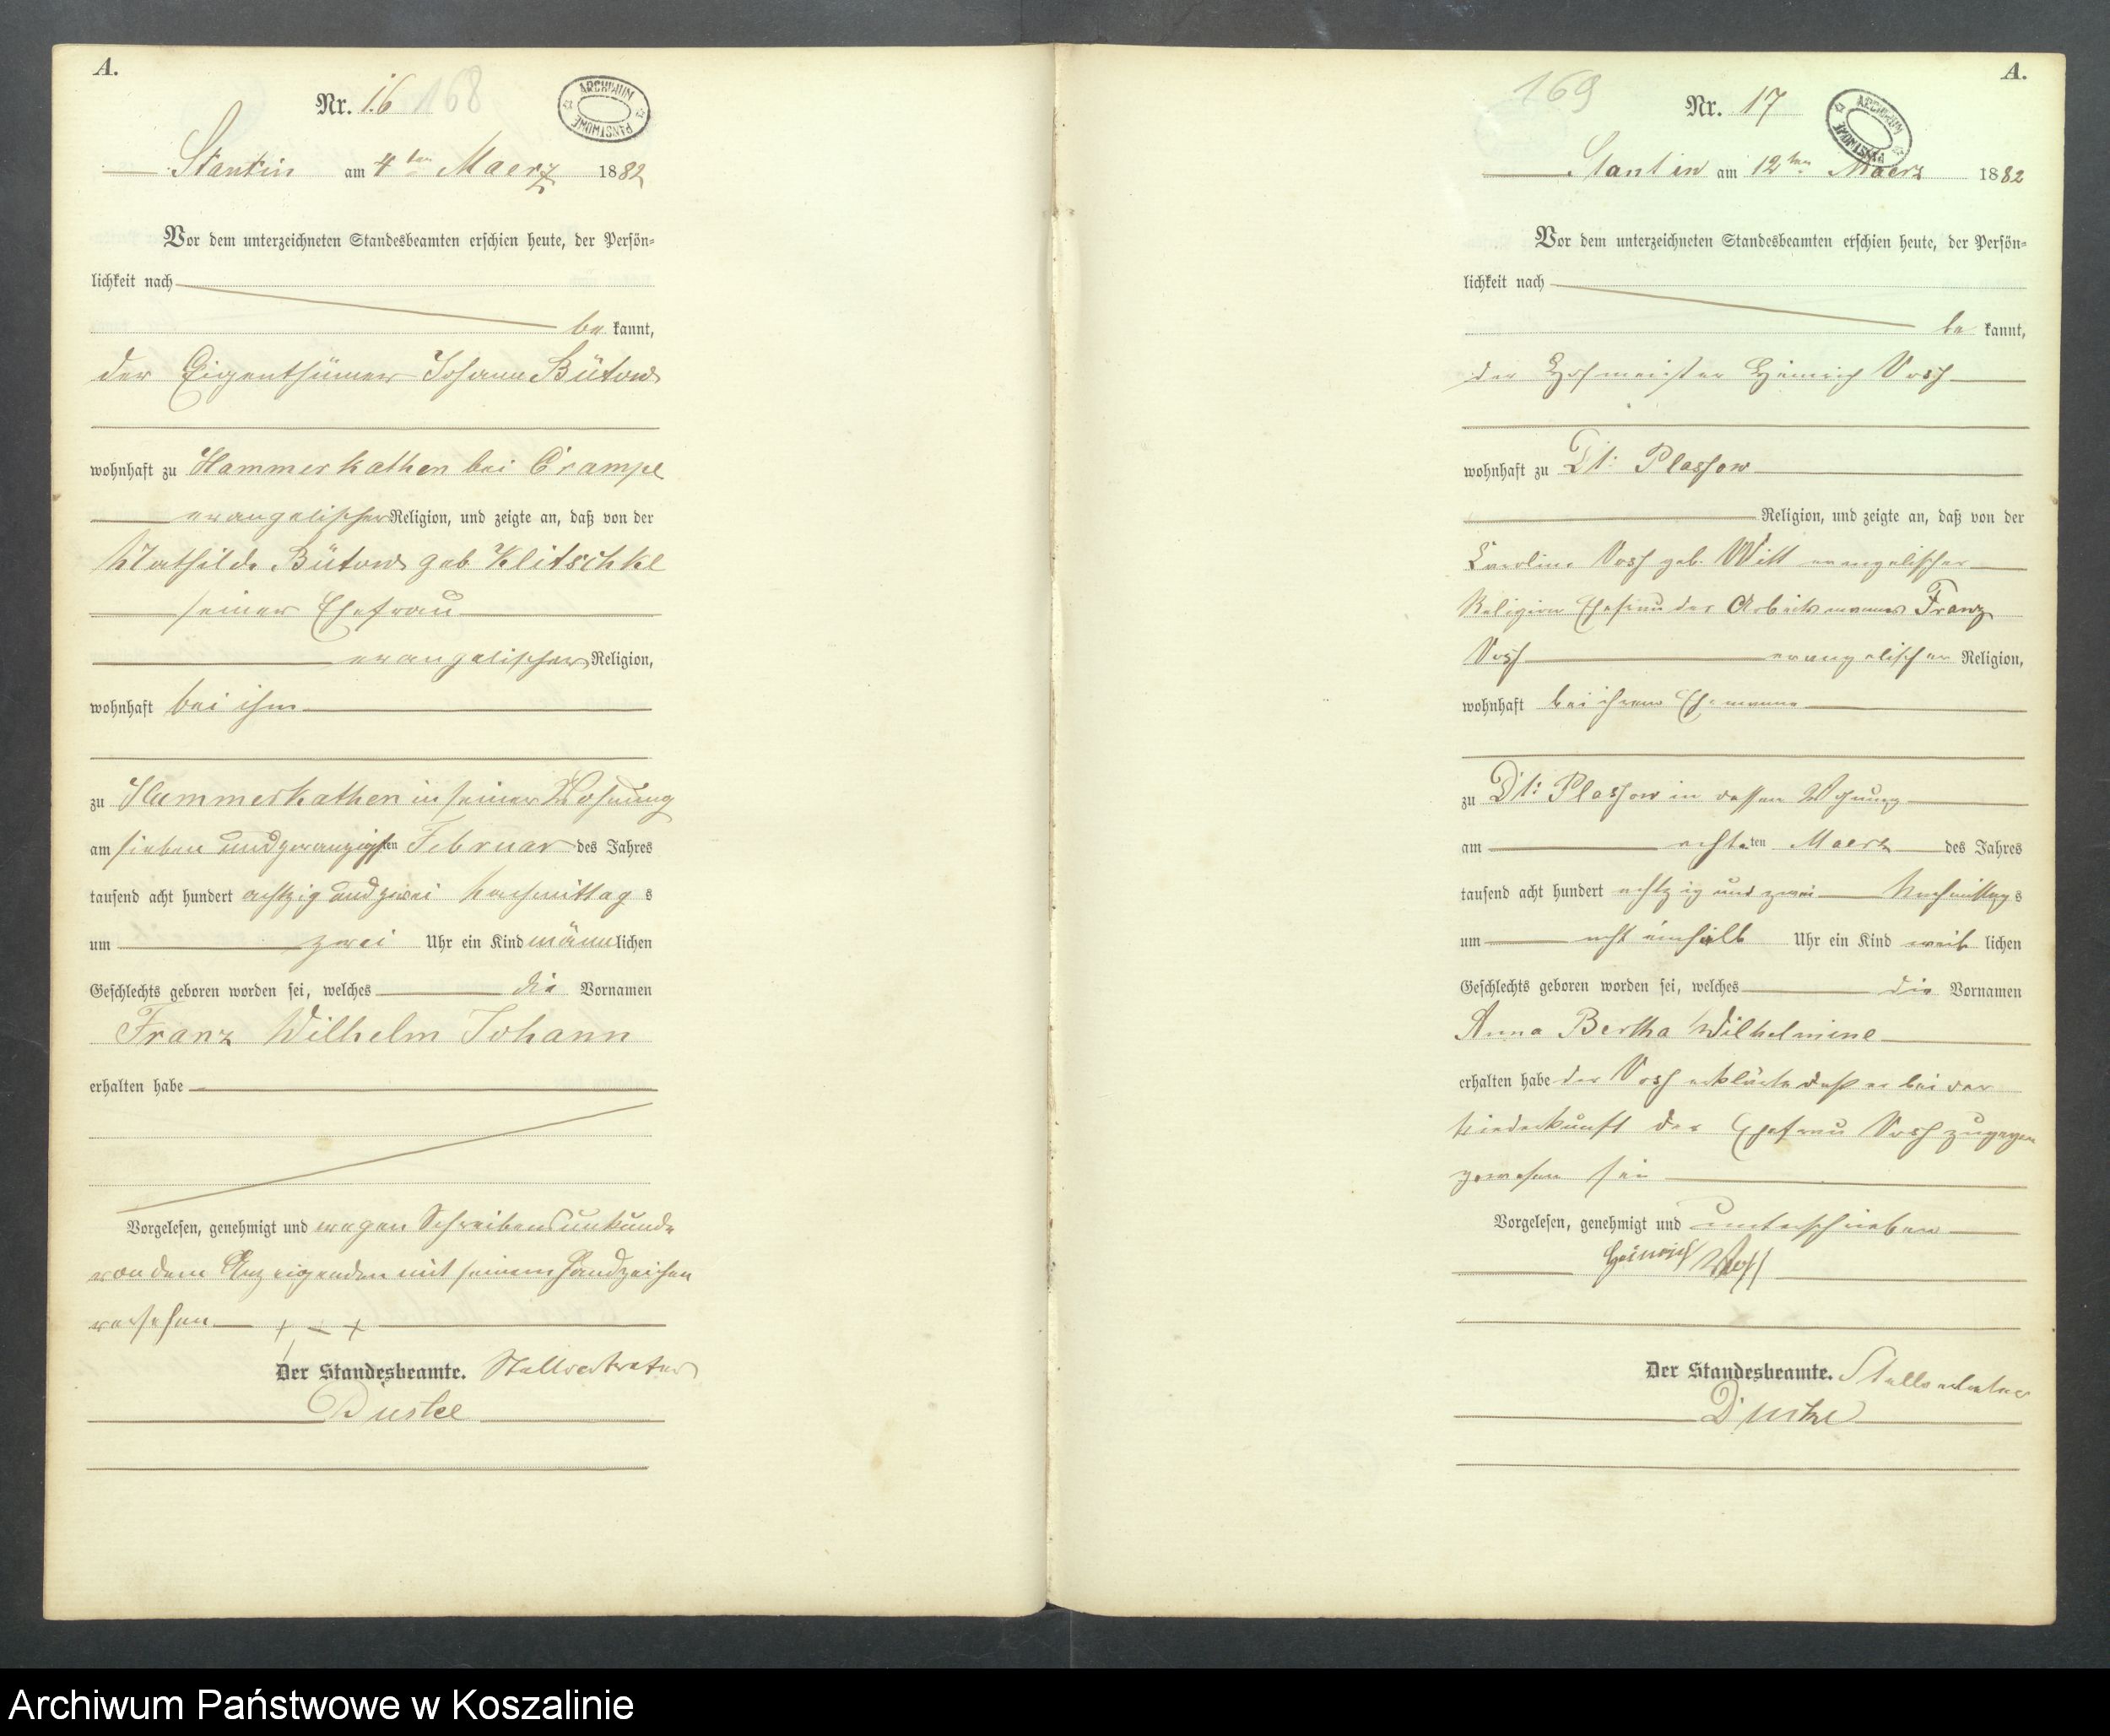 A.
Nr. 16 168
ARCHIWUM PAŃSTWOWE
Stantin am 4ten Maerz 1882
Vor dem unterzeichneten Standesbeamten erschien heute, der Persön=
lichkeit nach
be kannt,
der Eigenthümer Johann Bütow
wohnhaft zu Hammerkathen bei Crampe
evangelischer Religion, und zeigte an, daß von der
Mathilde Bütow geb Klitschke
seiner Ehefrau
evangelischer Religion,
wohnhaft bei ihm
zu Hammerkathen in seiner Wohnung
am sieben und zwanzigsten Februar des Jahres
tausend acht hundert achtzig und zwei Nachmittag s
um zwei Uhr ein Kind männlichen
Geschlechts geboren worden sei, welches die Vornamen
Franz Wilhelm Johann
erhalten habe
Vorgelesen, genehmigt und wegen Schreibensunkunde
von dem Anzeigenden mit seinem Handzeichen
versehen + — +
Der Standesbeamte. Stellvertreter
A.
169
Nr. 17
ARCHIWUM PAŃSTWOWE
Stantin am 12ten Maerz 1882
Vor dem unterzeichneten Standesbeamten erschien heute, der Persön=
lichkeit nach
be kannt,
der Hofmeister Heinrich Vosz
wohnhaft zu Dt: Plassow
Religion, und zeigte an, daß von der
Caroline Vosz geb. Witt evangelischer
Religion Ehefrau des Arbeitsmannes Franz
Vosz evangelischer Religion,
wohnhaft bei ihrem Ehemanne
zu Dt: Plassow in dessen Wohnung
am achtten Maerz des Jahres
tausend acht hundert achtzig und zwei Nachmittag s
um acht einhalb Uhr ein Kind weib lichen
Geschlechts geboren worden sei, welches die Vornamen
Anna Bertha Wilhelmine
erhalten habe der Vosz erklärte daß er bei der
Niederkunft der Ehefrau Vosz zugegen
gewesen sei
Vorgelesen, genehmigt und unterschrieben
Heinrich
Der Standesbeamte. Stellvertreter
Archiwum Państwowe w Koszalinie